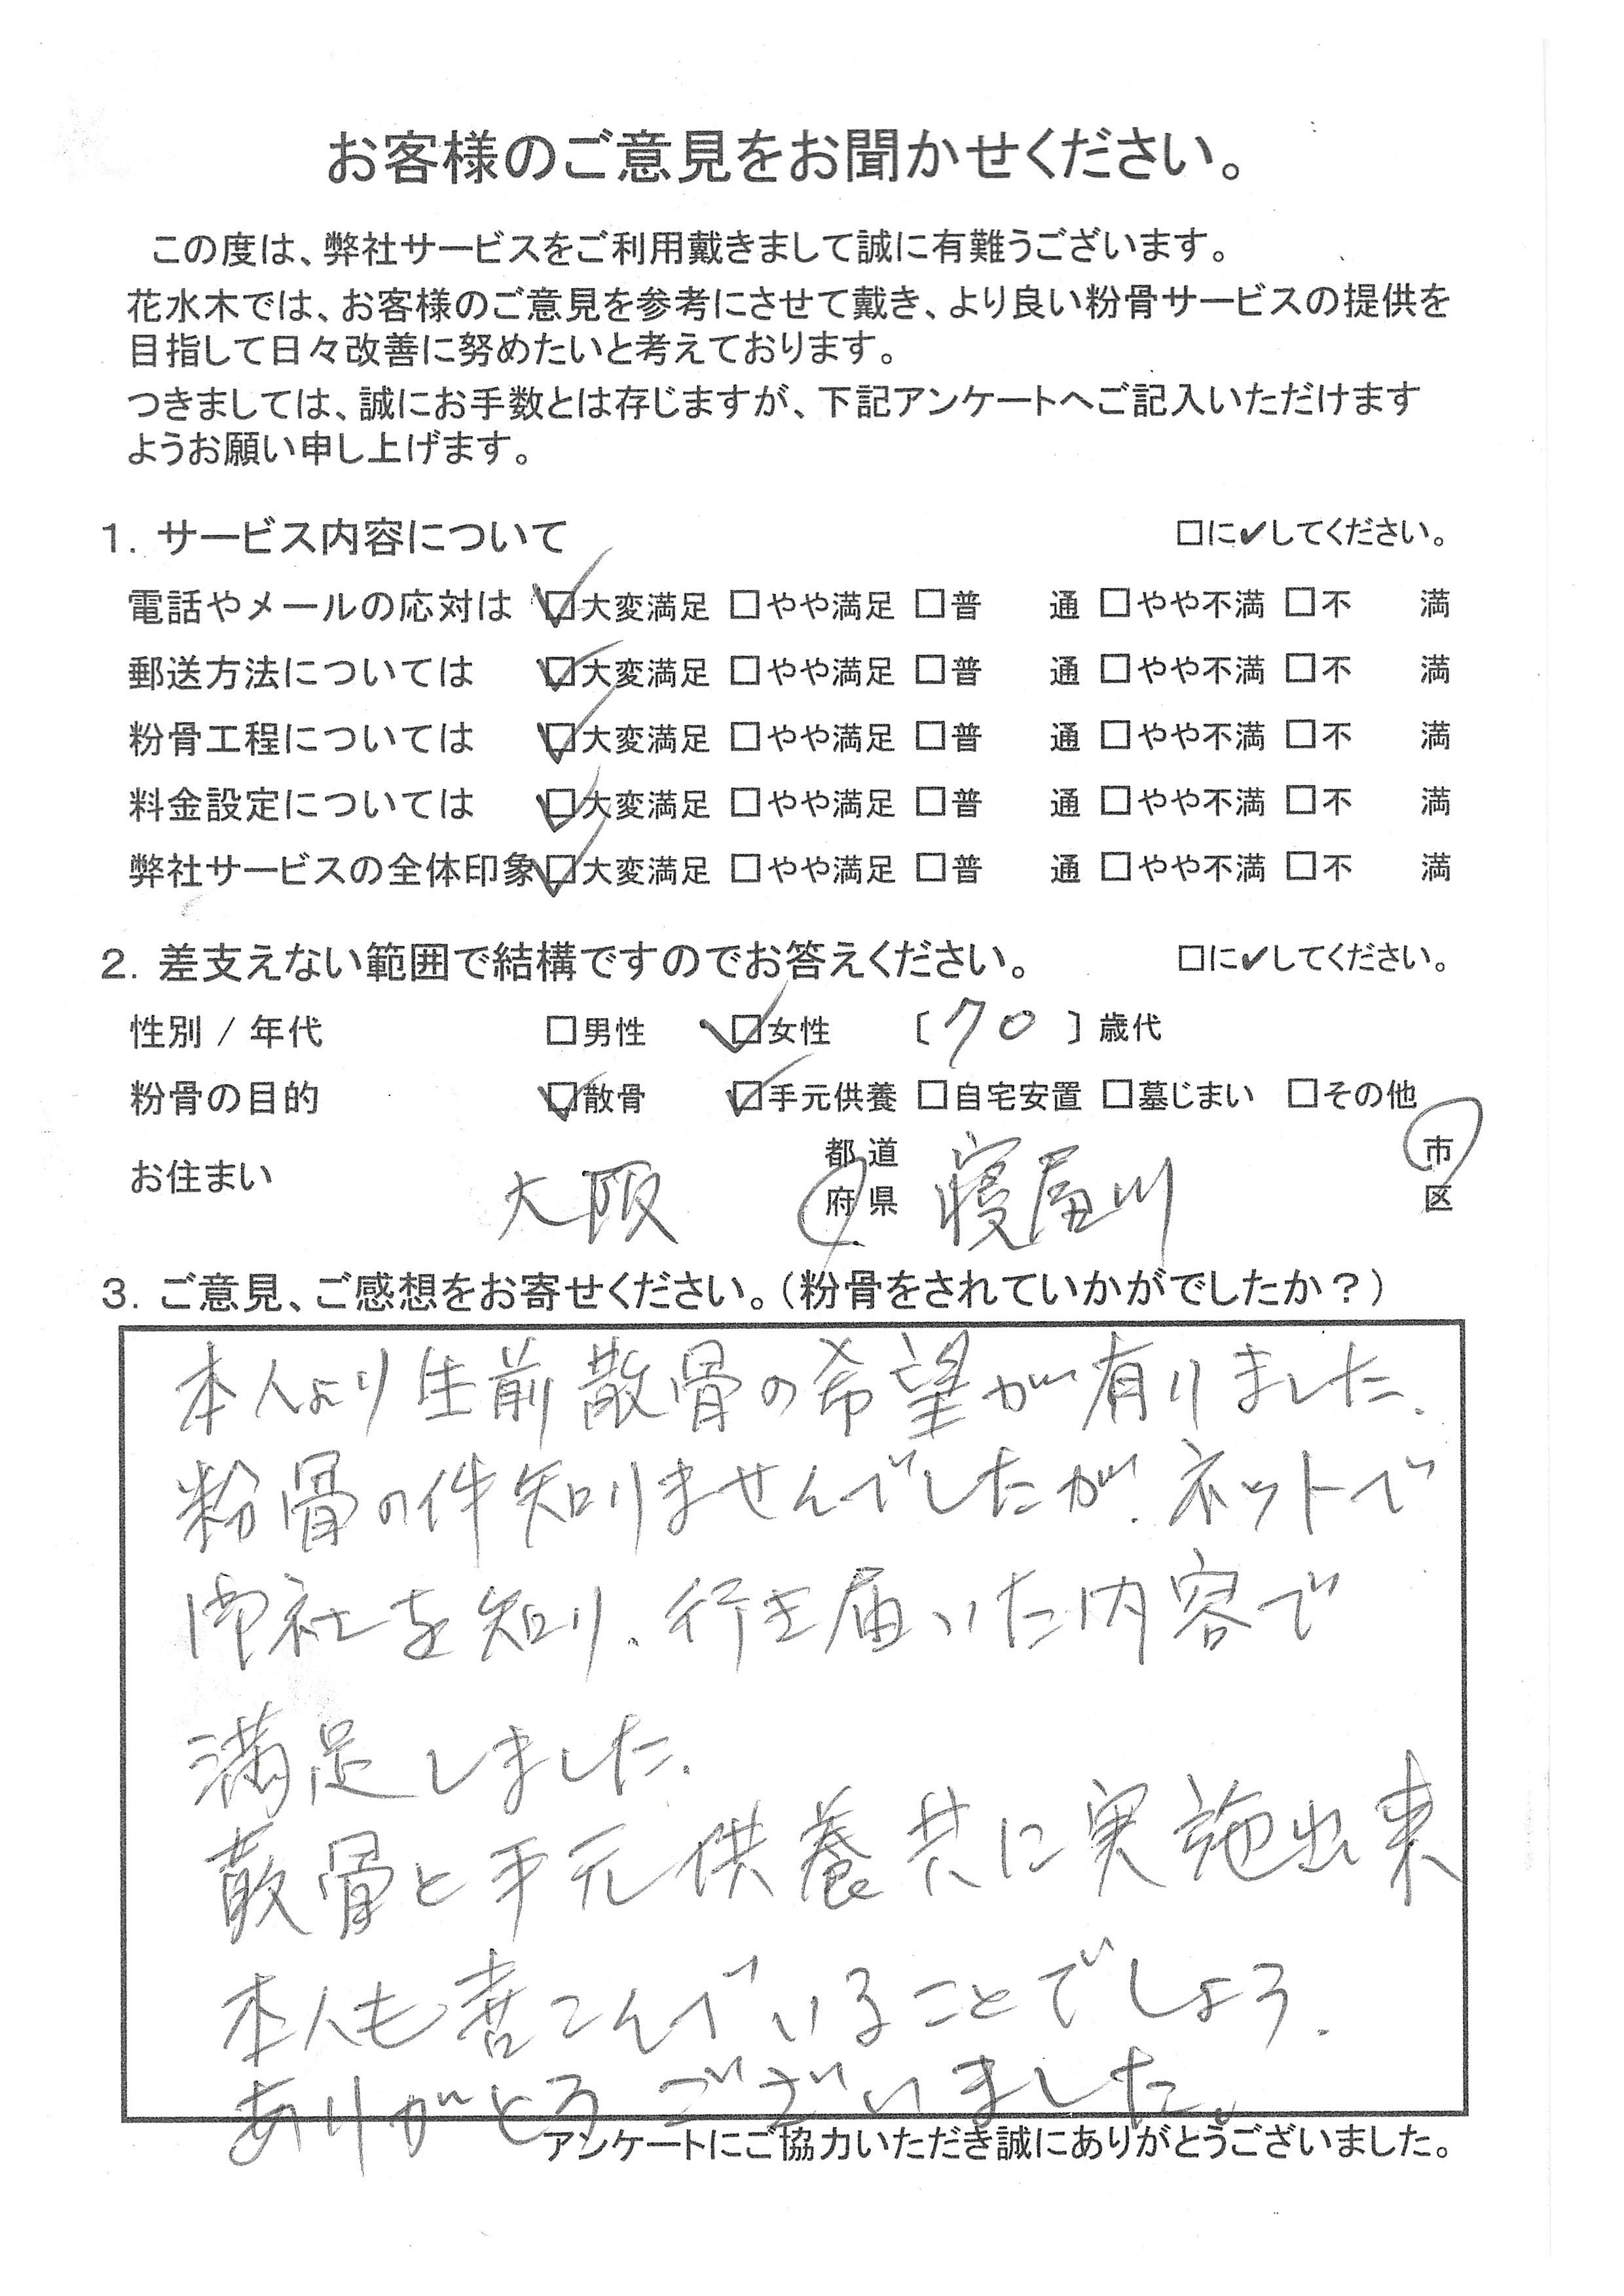 お客様のご意見をお聞かせください。
この度は、弊社サービスをご利用戴きまして誠に有難うございます。
花水木では、お客様のご意見を参考にさせて戴き、より良い粉骨サービスの提供を
目指して日々改善に努めたいと考えております。
つきましては、誠にお手数とは存じますが、下記アンケートへご記入いただけます
ようお願い申し上げます。
1. サービス内容について □に✔してください。
電話やメールの応対は ☑大変満足 □やや満足 □普 通 □やや不満 □不 満
郵送方法については ☑大変満足 □やや満足 □普 通 □やや不満 □不 満
粉骨工程については ☑大変満足 □やや満足 □普 通 □やや不満 □不 満
料金設定については ☑大変満足 □やや満足 □普 通 □やや不満 □不 満
弊社サービスの全体印象 ☑大変満足 □やや満足 □普 通 □やや不満 □不 満
2. 差支えない範囲で結構ですのでお答えください。 □に✔してください。
性別 / 年代 □男性 ☑女性 〔70〕歳代
粉骨の目的 ☑散骨 ☑手元供養 □自宅安置 □墓じまい □その他
お住まい 大阪 都道府県 寝屋川 市区
3. ご意見、ご感想をお寄せください。(粉骨をされていかがでしたか?)
本人より生前散骨の希望が有りました.
粉骨の件知りませんでしたが.ネットで
御社を知り.行き届いた内容で
満足しました.
散骨と手元供養共に実施出来
本人も喜こんでいることでしょう.
ありがとうございました。
アンケートにご協力いただき誠にありがとうございました。